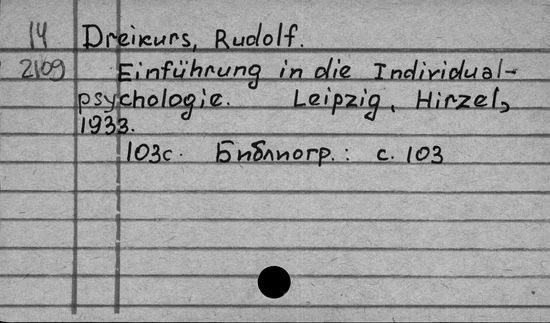 14 Dreikurs, Rudolf.
2109 Einführung in die Individual-
psychologie. Leipzig, Hirzel,
1933.
103с. Библиогр.: с. 103